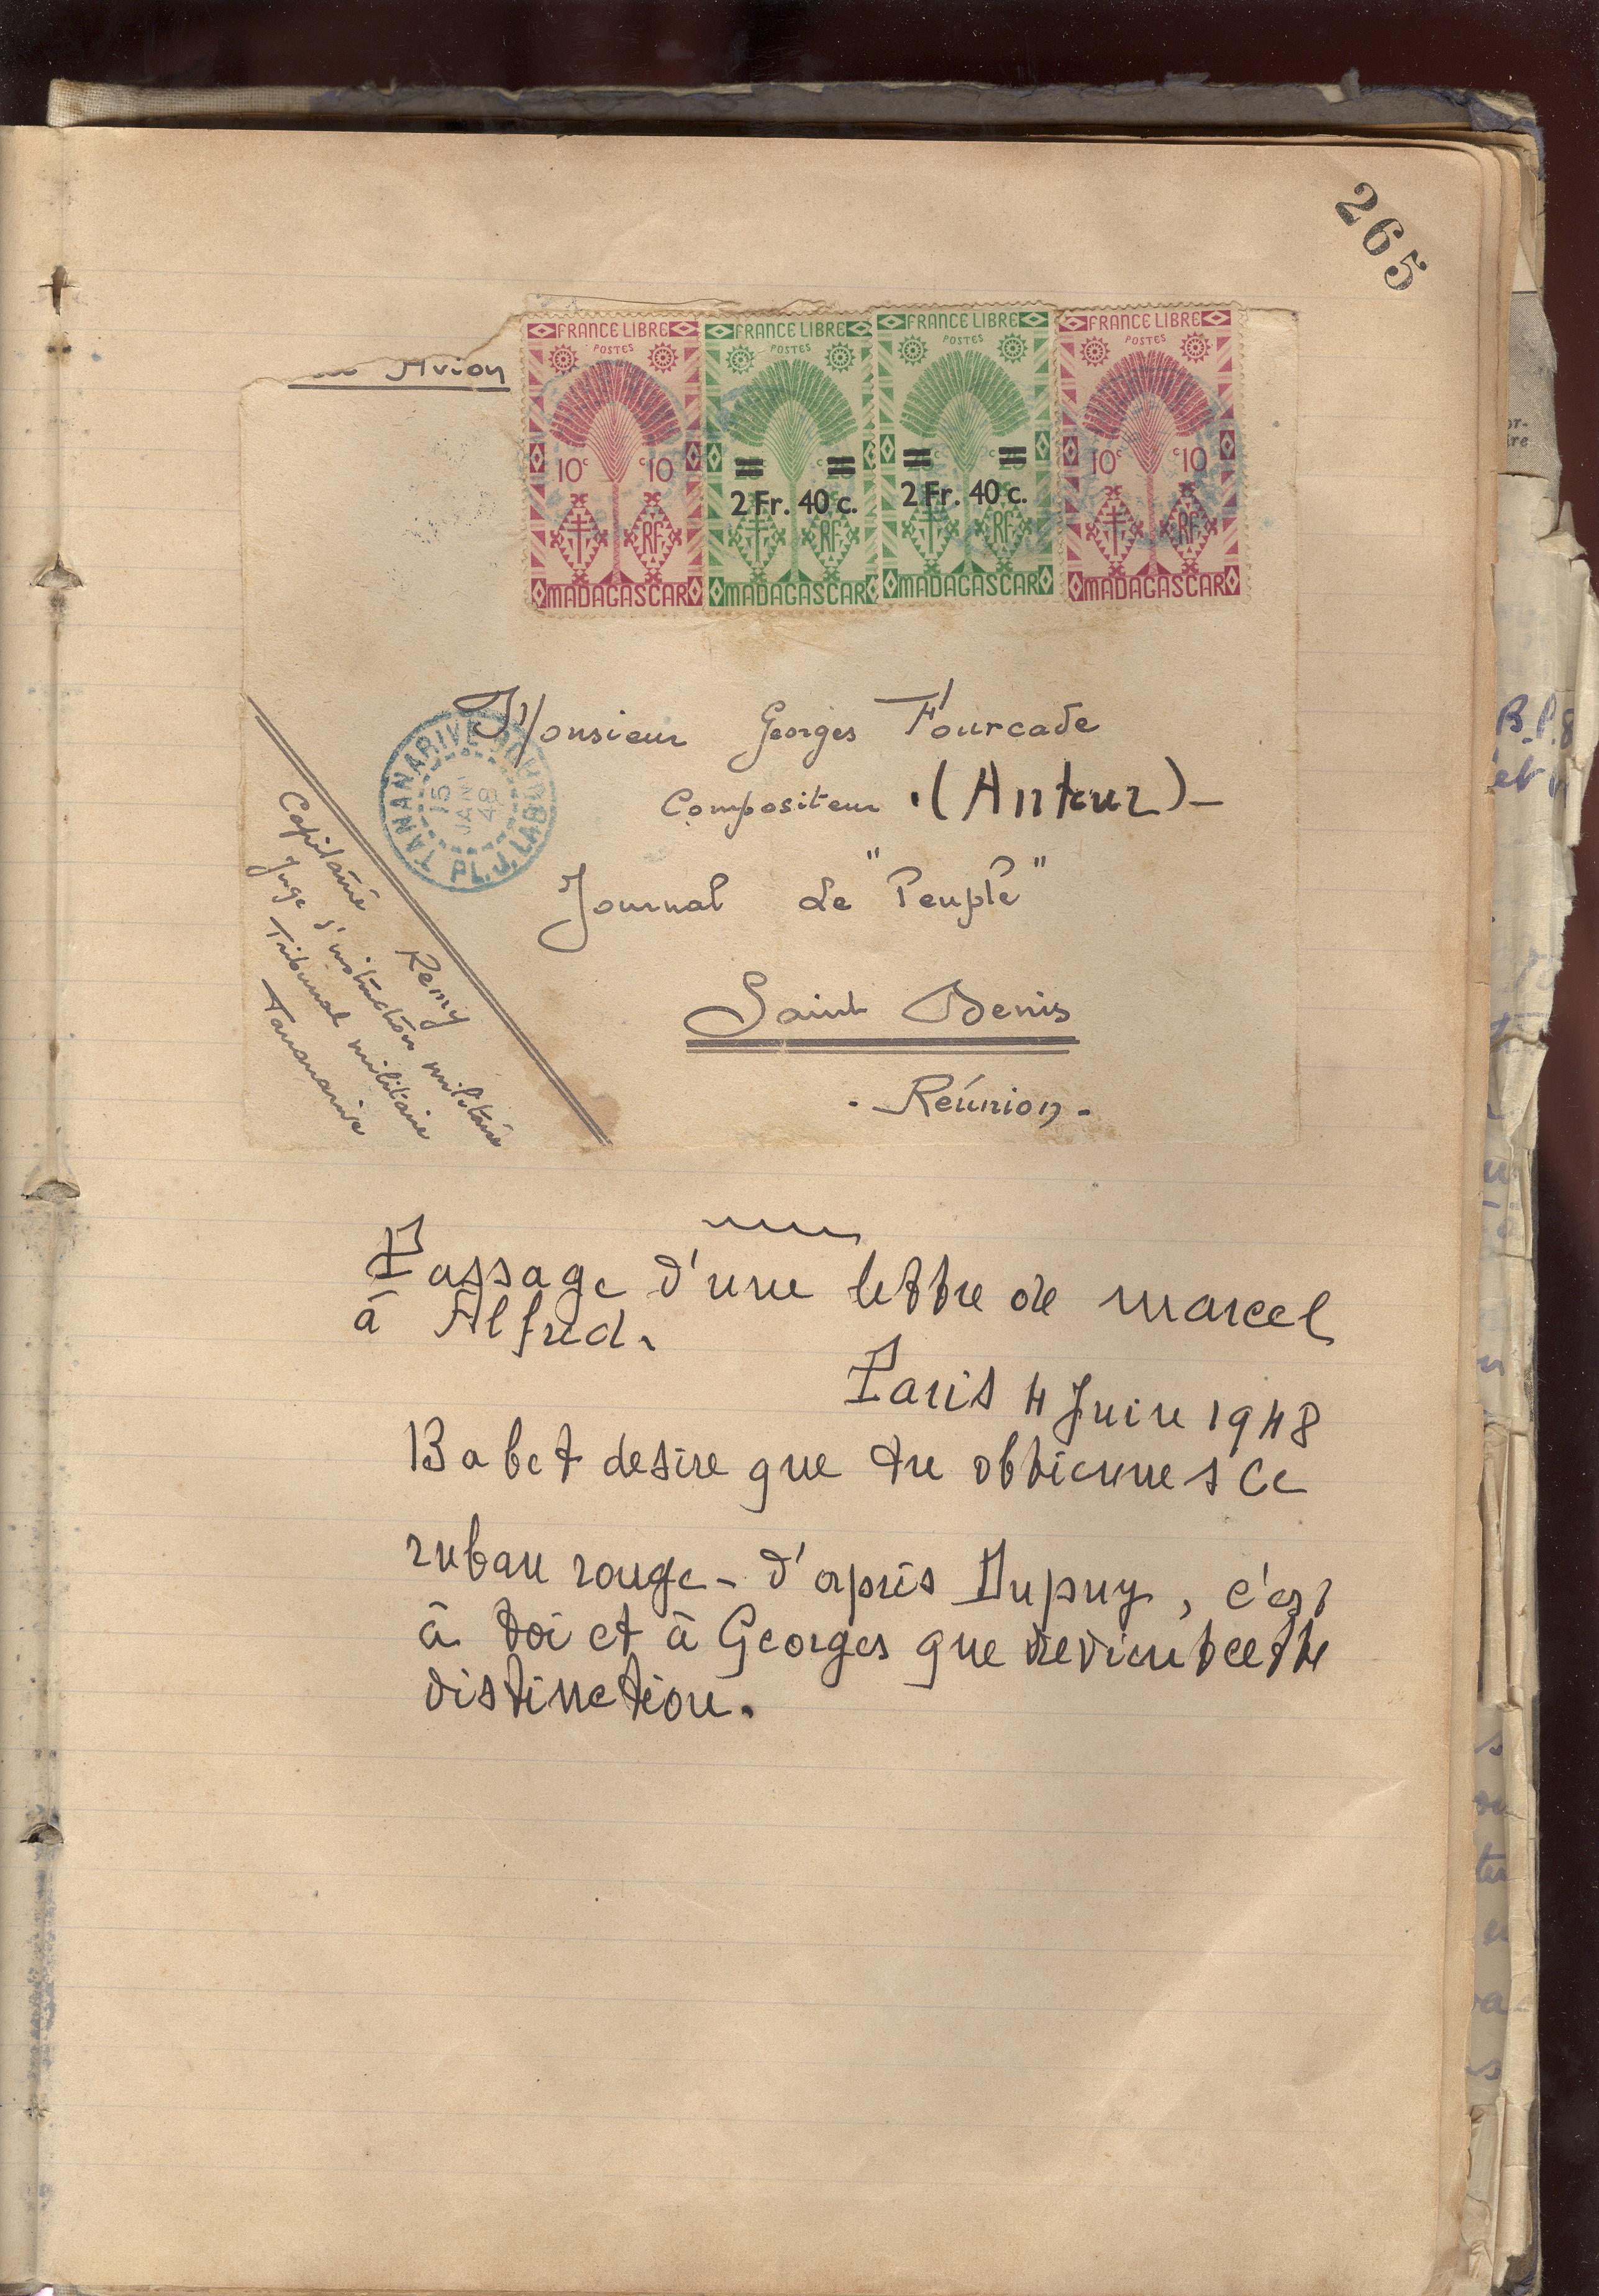 265
Avion
FRANCE LIBRE
POSTES
10c c10
RF
MADAGASCAR
FRANCE LIBRE
POSTES
2 Fr. 40 c.
RF
MADAGASCAR
FRANCE LIBRE
POSTES
2 Fr. 40 c.
RF
MADAGASCAR
FRANCE LIBRE
POSTES
10c c10
RF
MADAGASCAR
Monsieur Georges Fourcade
Compositeur . (Auteur) -
Journal Le "Peuple"
Saint Denis
- Réunion -
TANANARIVE
15
JANV
48
PL. J. LAB
Capitaine Remy
Juge d'instruction militaire
Tribunal militaire
Tananarive
Passage d'une lettre de marcel
à Alfred.
Paris 4 Juin 1948
Babet desire que tu obtiennes ce
ruban rouge - d'après Dupuy, c'est
à toi et à Georges que revient cette
distinction.
B.P.8